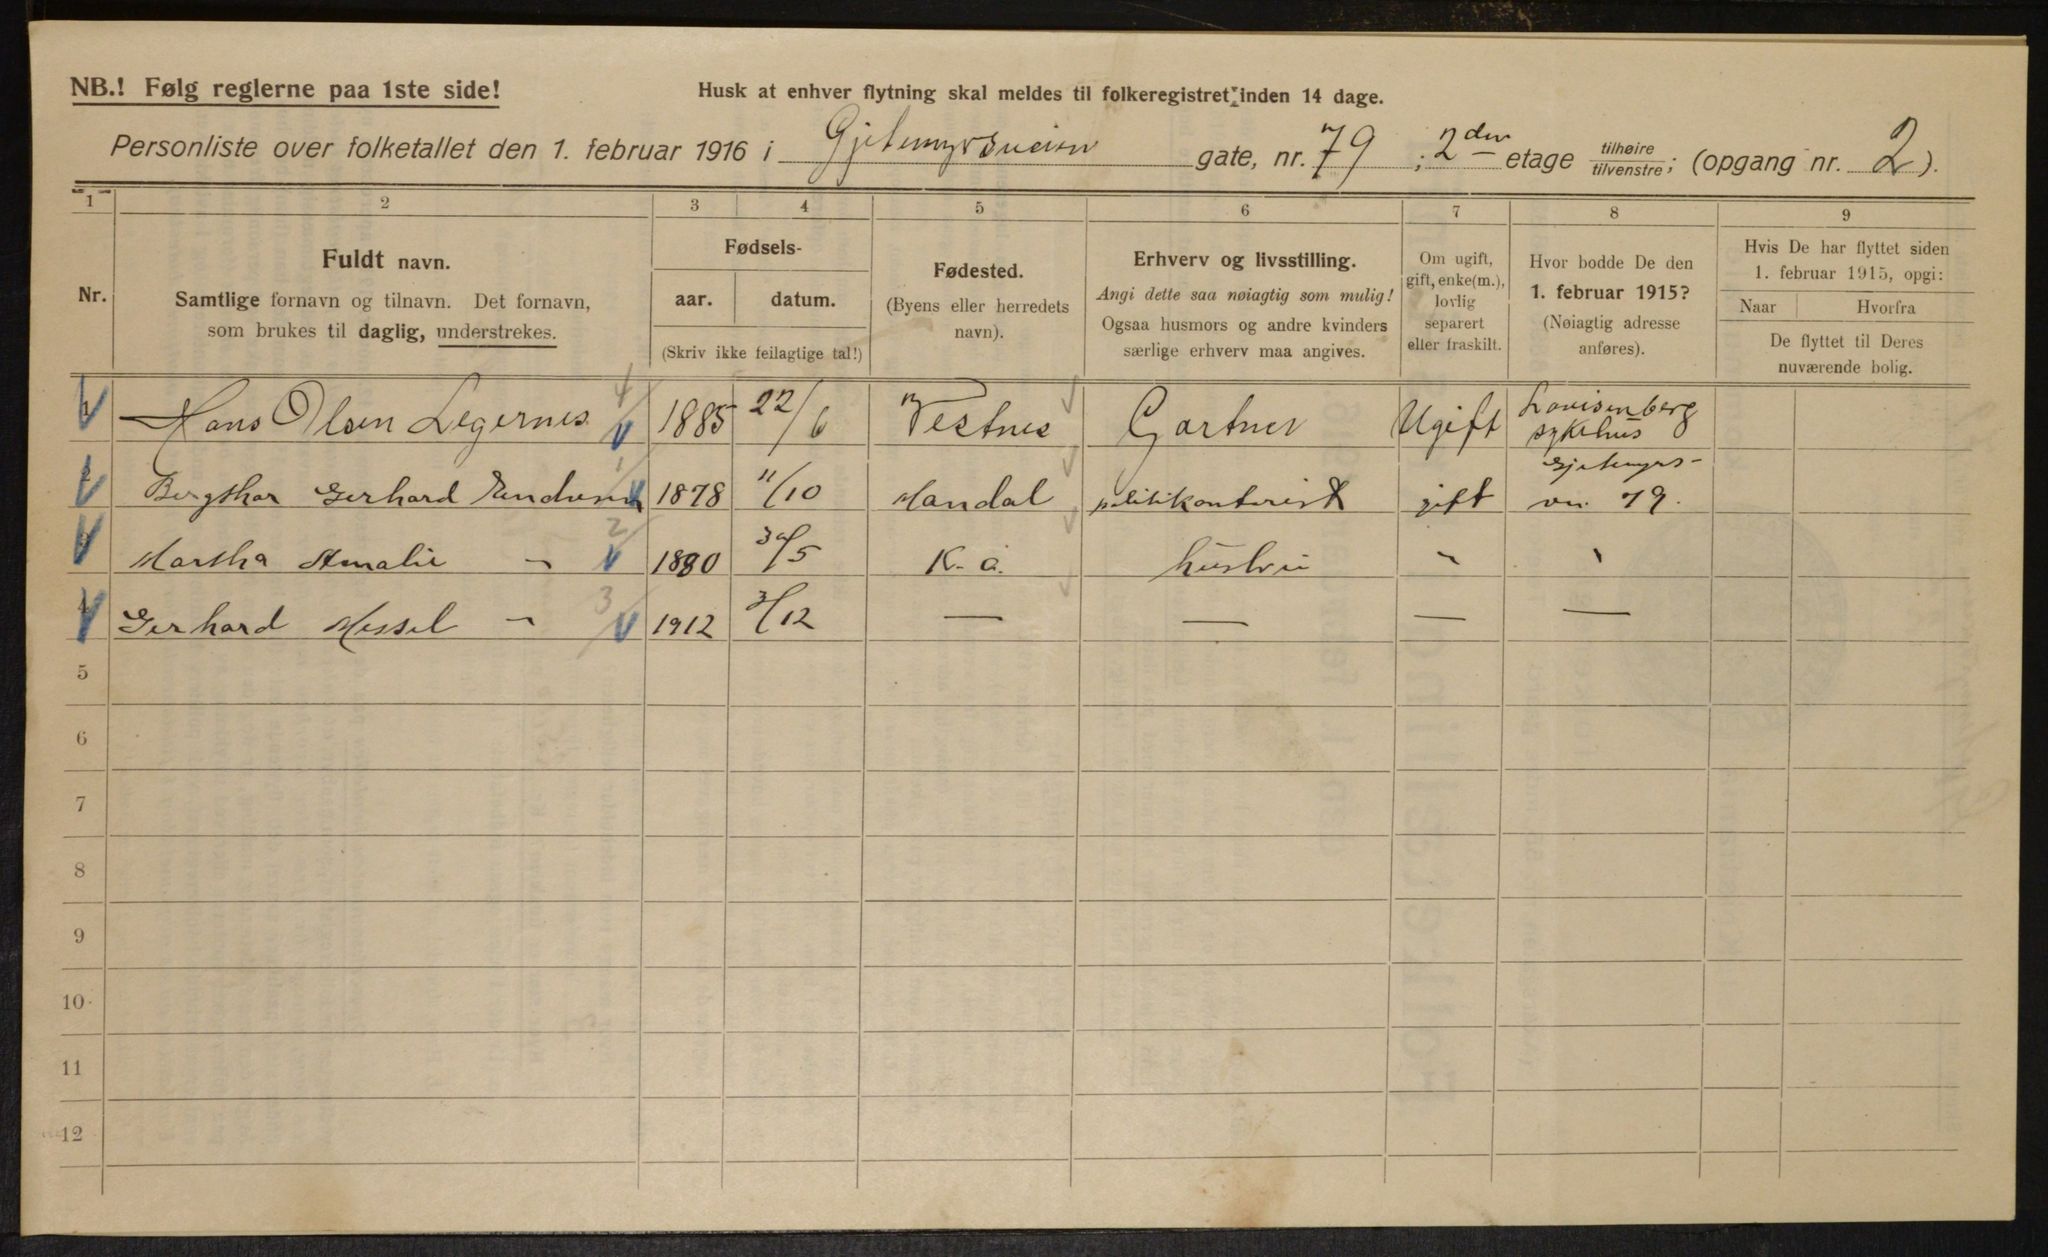 NB.! Følg reglerne paa 1ste side!
Husk at enhver flytning skal meldes til folkeregistret inden 14 dage.
Personliste over folketallet den 1. februar 1916 i Gjetemyrsveien gate, nr. 79 ; 2den etage tilhøire/tilvenstre; (opgang nr. 2).
1 2 3 4 5 6 7 8 9
Nr.
Fuldt navn.
Samtlige fornavn og tilnavn. Det fornavn,
som brukes til daglig, understrekes.
Fødsels-
aar. datum.
(Skriv ikke feilagtige tal!)
Fødested.
(Byens eller herredets
navn).
Erhverv og livsstilling.
Angi dette saa nøiagtig som mulig!
Ogsaa husmors og andre kvinders
særlige erhverv maa angives.
Om ugift,
gift, enke(m.),
lovlig
separert
eller fraskilt.
Hvor bodde De den
1. februar 1915?
(Nøiagtig adresse
anføres).
Hvis De har flyttet siden
1. februar 1915, opgi:
Naar Hvorfra
De flyttet til Deres
nuværende bolig.
1 Hans Olsen Legernes 4 1885 22/6 Vestnes Gartner Ugift Lovisenberg
sykehus
2 Gerhard 1 1878 11/10 Mandal politikontorist gift Gjetemyrs-
vn. 79.
3 Martha Amalie " 2 1880 30/5 K.a. hustru " "
4 Gerhard Messel " 3 1912 3/12 — — — —
5
6
7
8
9
10
11
12